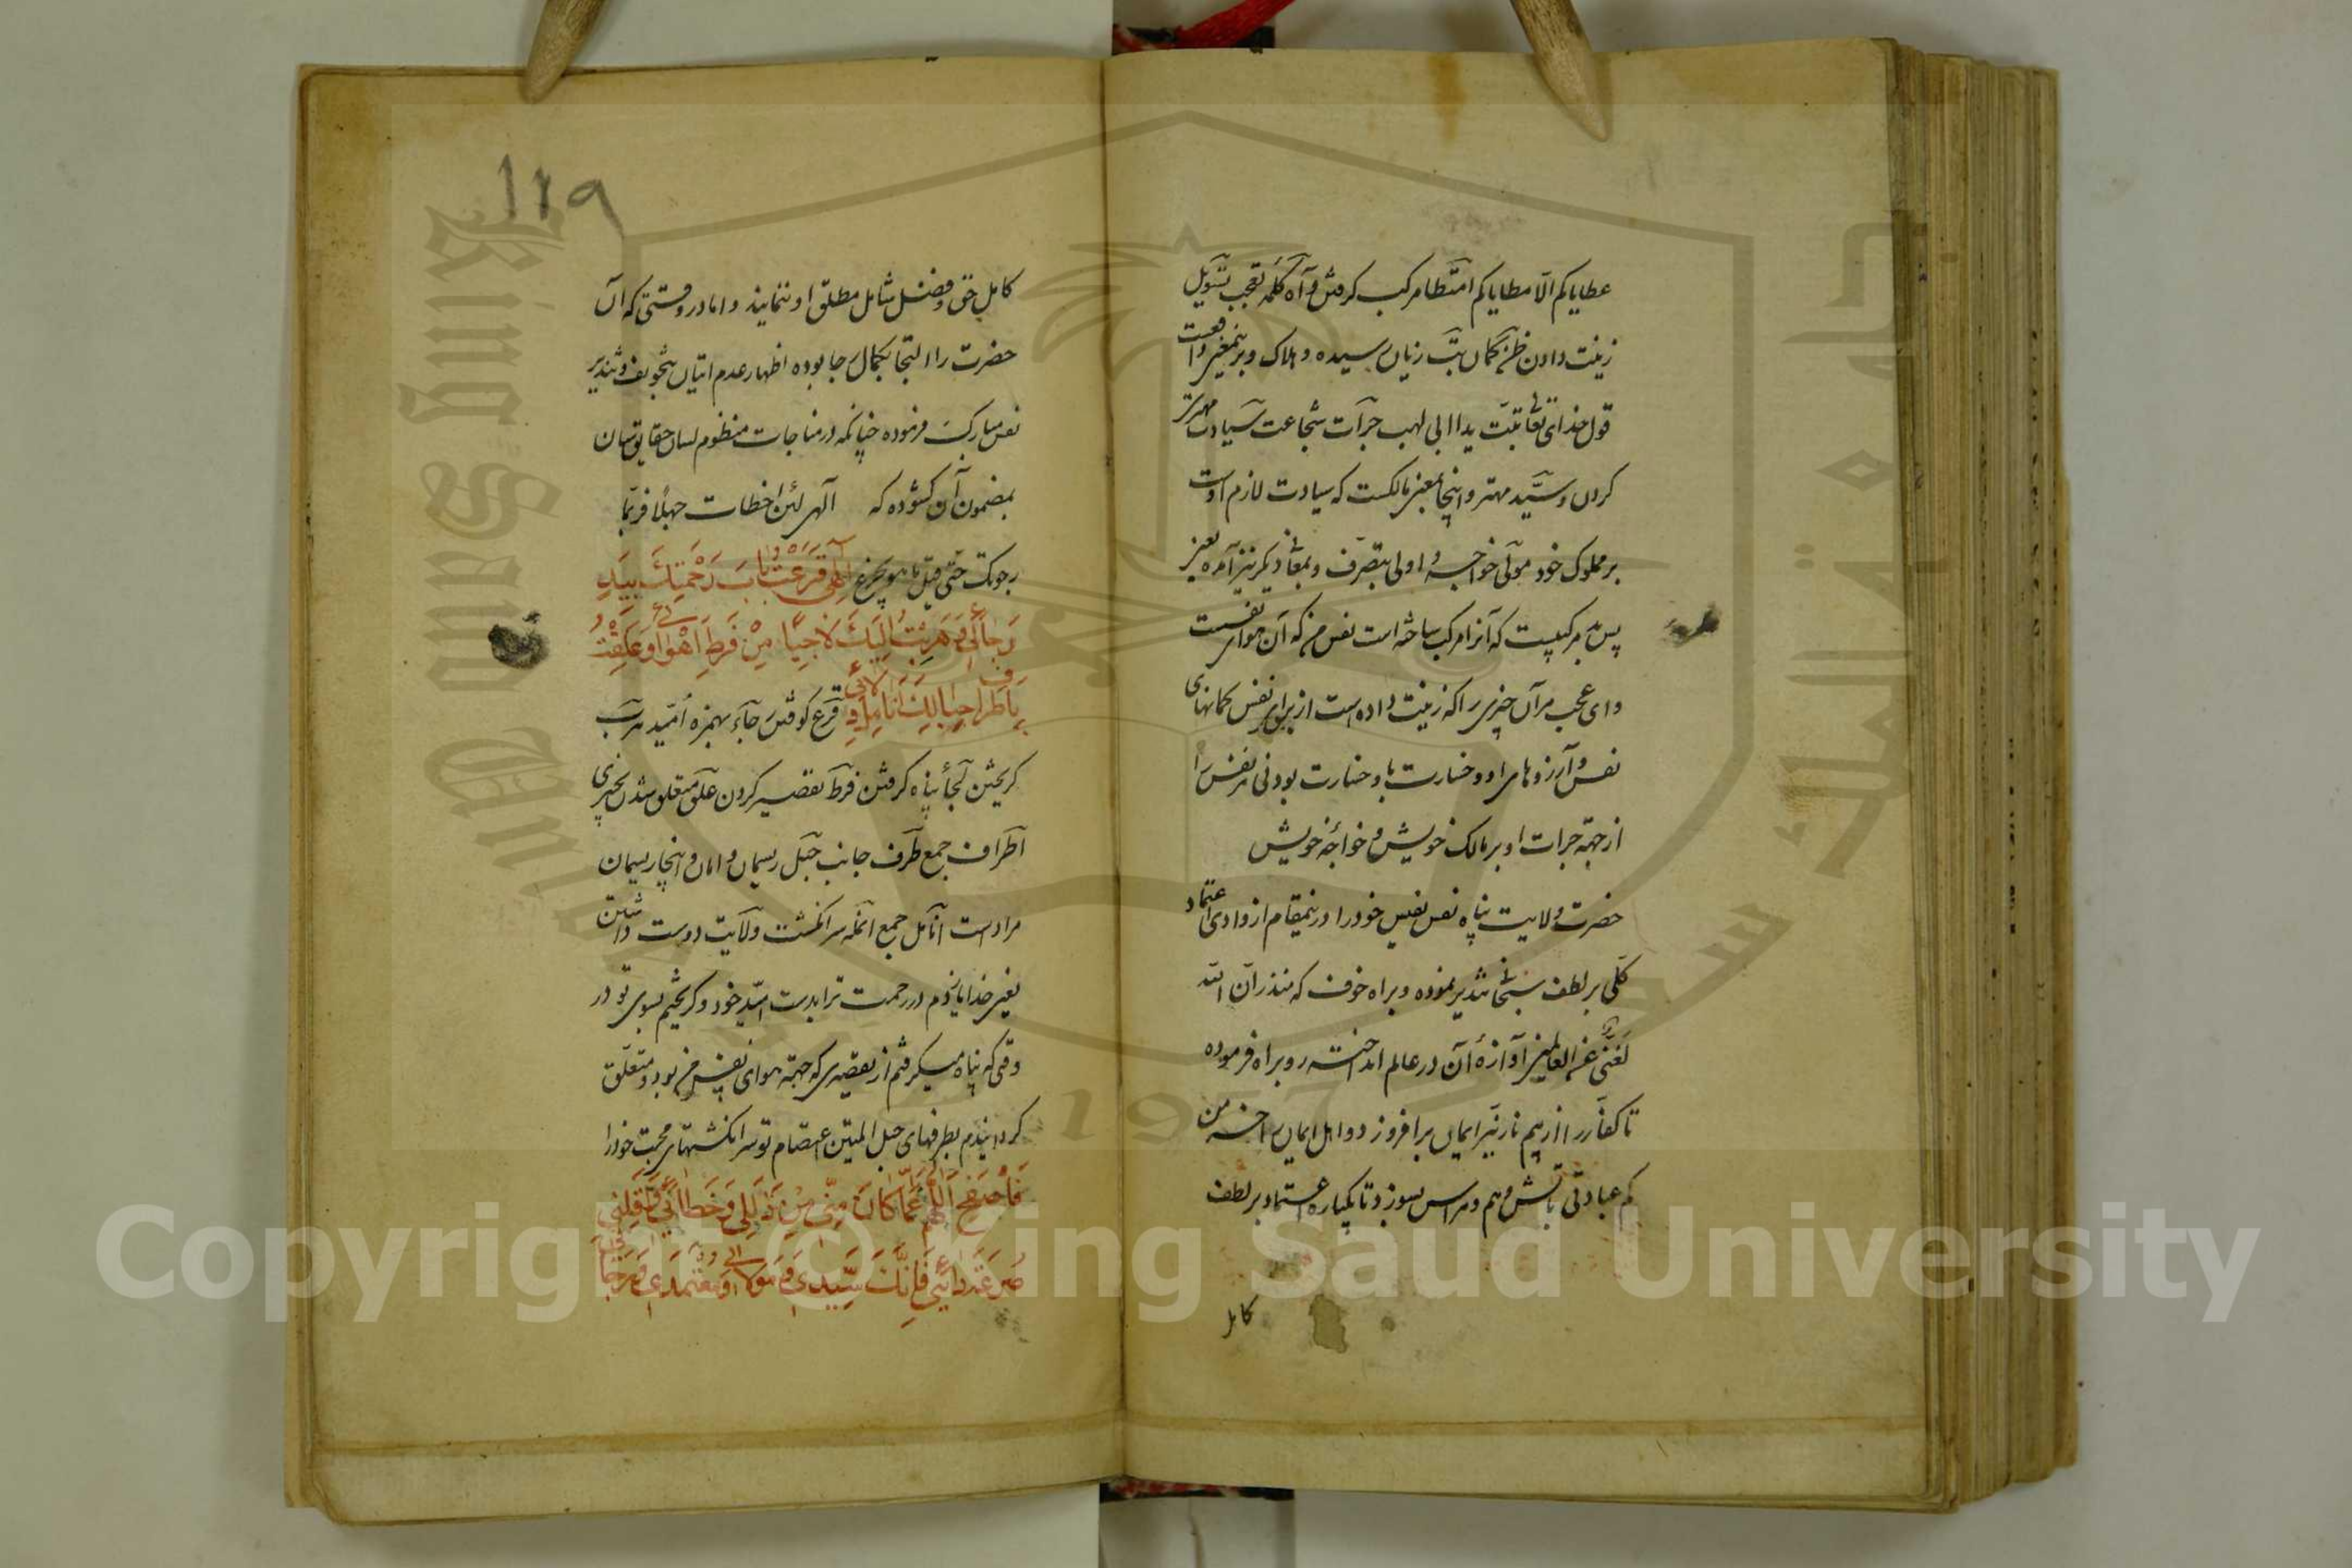 عطایاکم الا مطایاکم امتطا مرکب کرفتن واه کلمه تعجب تسویل
زینت دادن ظن کمان تب زیان رسیده و هلاک وبرینمعنی واقعست
قول خدای تعالی تبت یدا ابی لهب جرآت شجاعت سیادت مهتر
کردن و سید مهتر واینجا بمعنی مالکست که سیادت لازم اوست
بر مملوک خود مولی خواجه و اولی بتصرف و بمعانی دیکر نیز آمده یعنی
پس بد مرکبیست که آنرا مرکب ساخته است نفس من که آن هوای نفسست
وای عجب مر آن چیزی را که زینت داده است از برای نفس کمانهای
نفس و آرزوهای او و خسارت باد خسارت بودنی مر نفس را
از جهة جرات او بر مالک خویش و خواجهٔ خویش
حضرت ولایت پناه نفس نفیس خودرا درینمقام از وادی اعتماد
کلی بر لطف سبحانی تنذیر نموده و براه خوف که منذر ان الله
لغنی عن العالمین آوازهٔ آن در عالم انداخته رو براه فرموده
تا کفار را ازین بیم نار نیر ایمان برافروزد و اهل ایمان را خرمن
کم عبادتی باتش وهم و هراس بسوزد تا یکباره اعتماد بر لطف
کامل
۱۱۹
کامل حق و فضل شامل مطلق او ننمایند و اما در وقتی که آن
حضرت را التجا بکمال رجا بوده اظهار عدم اتیان بتخویف و تنذیر
نفس مبارک فرموده چنانکه در مناجات منظوم لسان حقایق تبیان
بمضمون آن کشوده که الهی لئن اخطات جهلا فربما
رجوتک حتی قیل ما هو یجزع الهی قرعت باب رحمتک بید
رجائی وهربت الیک لاجیا من فرط اهوائی وعلقت
باطراف حبالک انامل ولائی قرع کوفتن رجآء بهمزه امید هرب
کریختن لجأ پناه کرفتن فرط تقصیر کردن علق متعلق شدن بچیزی
اطراف جمع طرف جانب حبل ریسمان و امان و اینجا ریسمان
مراد است انامل جمع انمله سر انکشت ولایت دوست داشتن
یعنی خدایا زدم در رحمت ترا بدست امید خود و کریختم بسوی تو در
وقتی که پناه میکرفتم از تقصیری که جهة هوای نفس من بود و متعلق
کردانیدم بطرفهای حبل المتین اعتصام تو سر انکشتهای محبت خودرا
فاصفح اللهم عما کان منی من زللی وخطائی واقلنی
صرعة ردائی فانک سیدی ومولائی ومعتمدی ورجائی